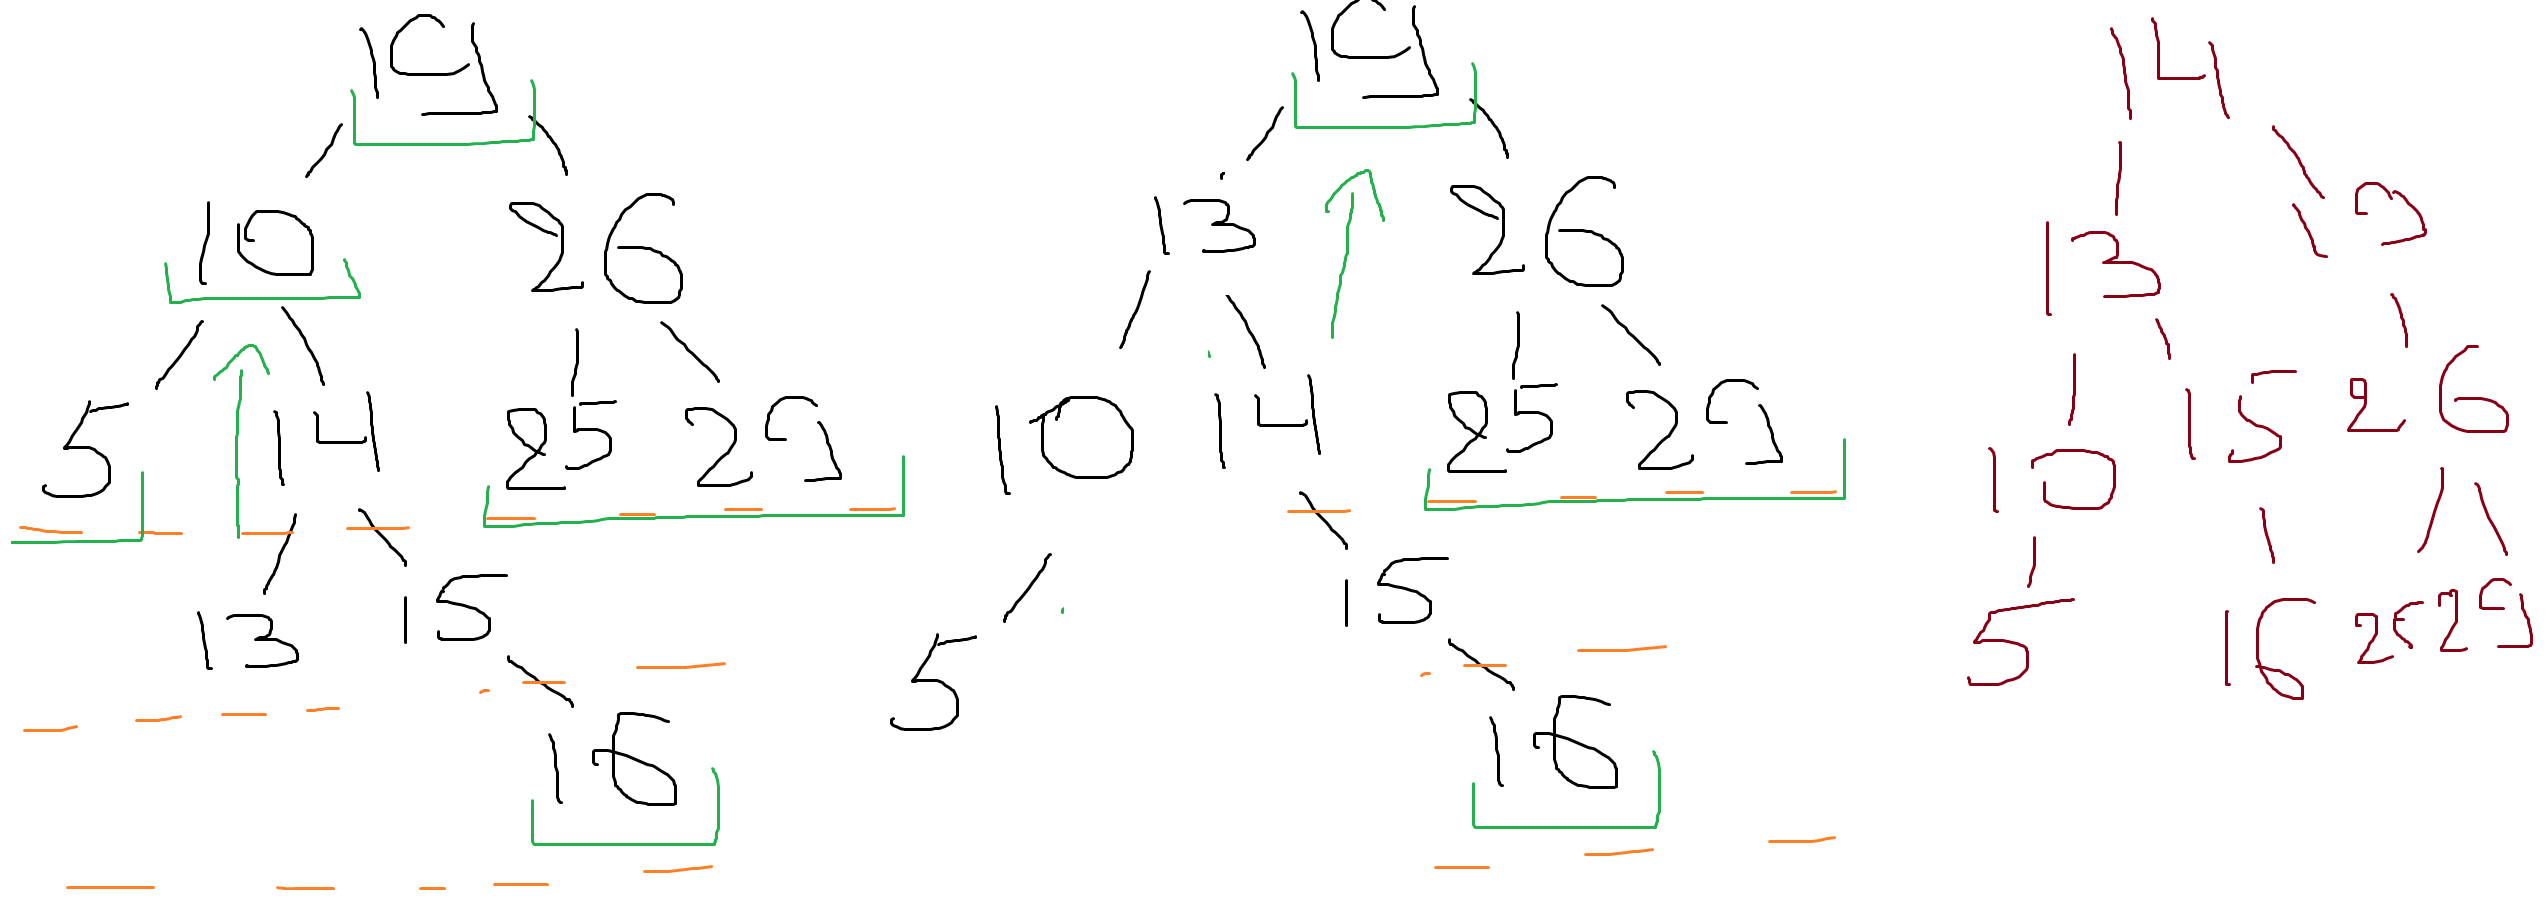 19
10 26
5 14 25 29
13 15
16
19
13 26
10 14 25 29
5 15
16
14
13 19
10 15 26
5 16 25 29